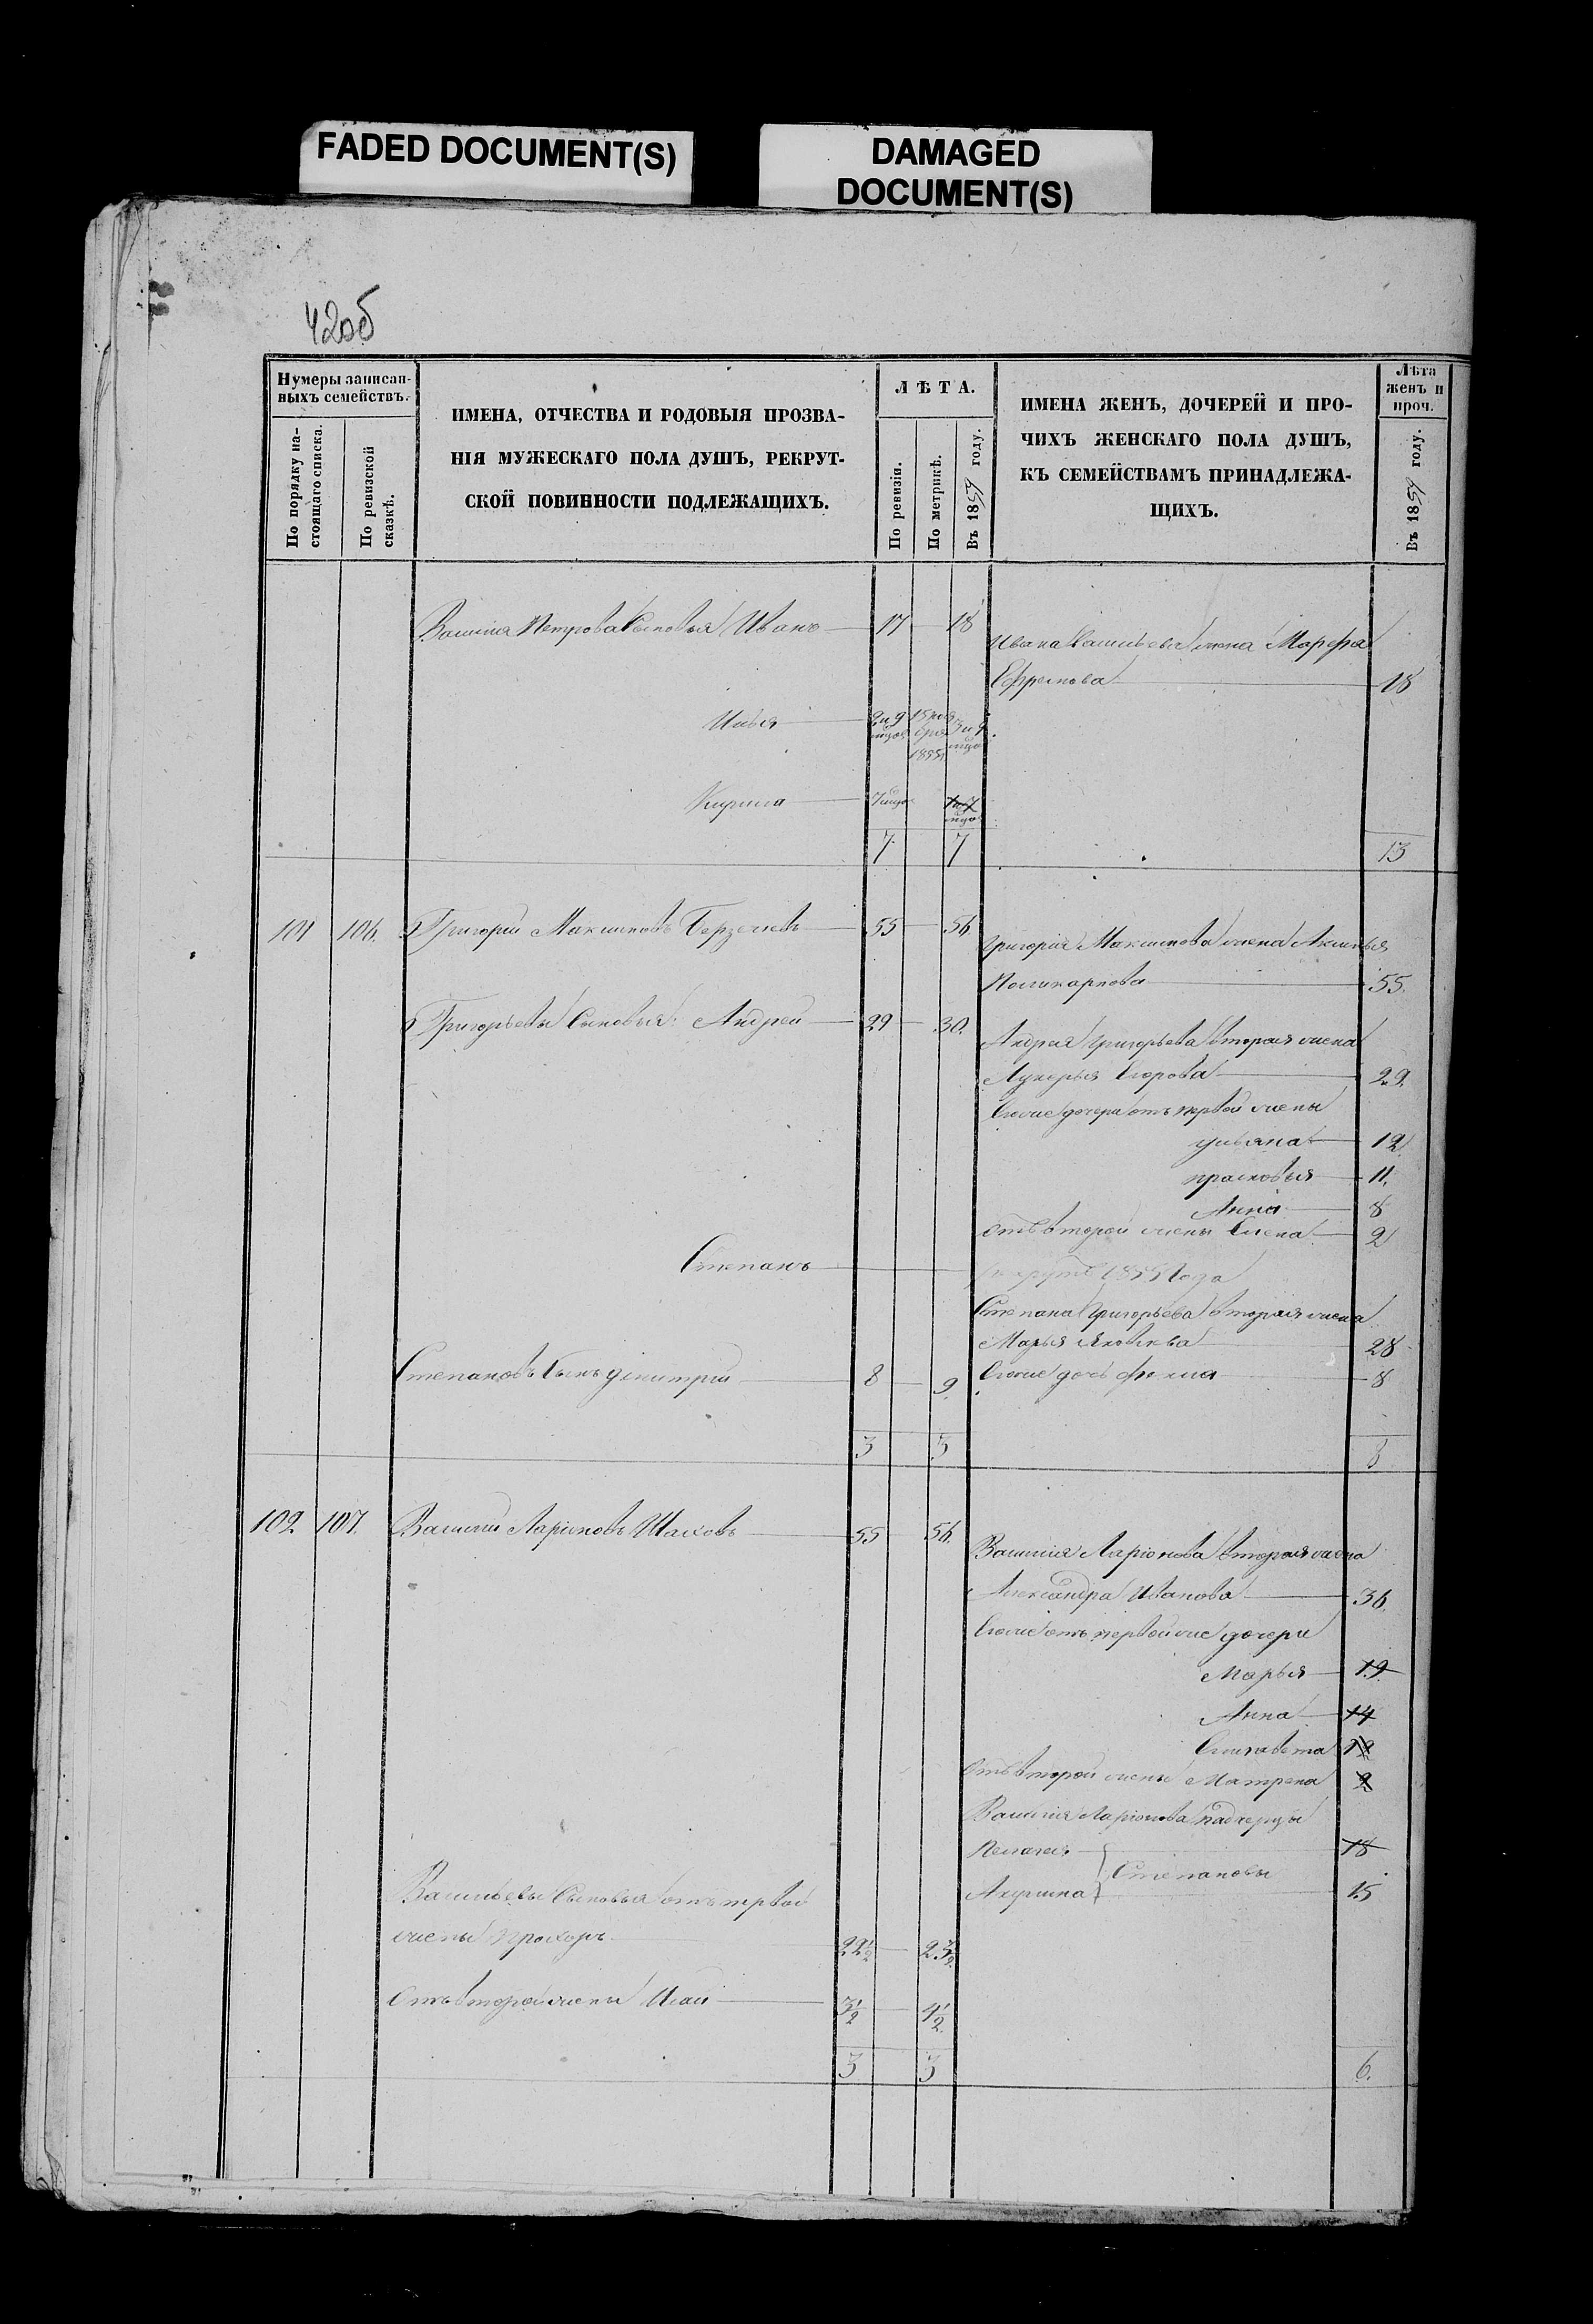 FADED DOCUMENT(S)
DAMAGED
DOCUMENT(S)
42об
Нумеры записан-
ныхъ семействъ.
По порядку на-
стоящаго списка.
По ревизской
сказкѣ.
ИМЕНА, ОТЧЕСТВА И РОДОВЫЯ ПРОЗВА-
НІЯ МУЖЕСКАГО ПОЛА ДУШЪ, РЕКРУТ-
СКОЙ ПОВИННОСТИ ПОДЛЕЖАЩИХЪ.
ЛѢТА.
По ревизіи.
По метрикѣ.
Въ 1859 году.
ИМЕНА ЖЕНЪ, ДОЧЕРЕЙ И ПРО-
ЧИХЪ ЖЕНСКАГО ПОЛА ДУШЪ,
КЪ СЕМЕЙСТВАМЪ ПРИНАДЛЕЖА-
ЩИХЪ.
Лѣта
женъ и
проч.
Въ 1859 году.
Василія Петрова Сыновья Иванъ 17 18
Ивана Васильева жена Марфа
Ефремова 18
Илья 2 и 9 15 1855 3 и 9
Кирила 7
7 7 13
101 106. Григорій Максимовъ 55 56
Григорія Максимова жена Аксинья
Поликарпова 55.
Григорьевы Сыновья: Андрей 29 30.
Андрея Григорьева вторая жена
Лукерья Егорова 29.
Ево же дочери отъ первой жены
ульяна 12
прасковья 11.
Анна 8
отъ второй жены Елена 2
Степанъ
1855 года
Степана Григорьева вторая жена
Марья Яковлева 28
Степановъ Сынъ димитрій 8 9
Ево же дочь фекла 8
3 3 8
102 107. Василій Ларіоновъ 55 56.
Василія Ларіонова вторая жена
Александра Иванова 36.
Ево же отъ первой же дочери
Марья 19
Анна 14
Елизавета 12
Отъ второй жены Матрена 2
Василія Ларіонова падчерицы
Пелагея 18
Степановы
Акулина 15
Васильевы Сыновья отъ первой
жены Прохоръ 22½ 23½
Отъ второй жены Исай 3½ 4½
3 3 6.